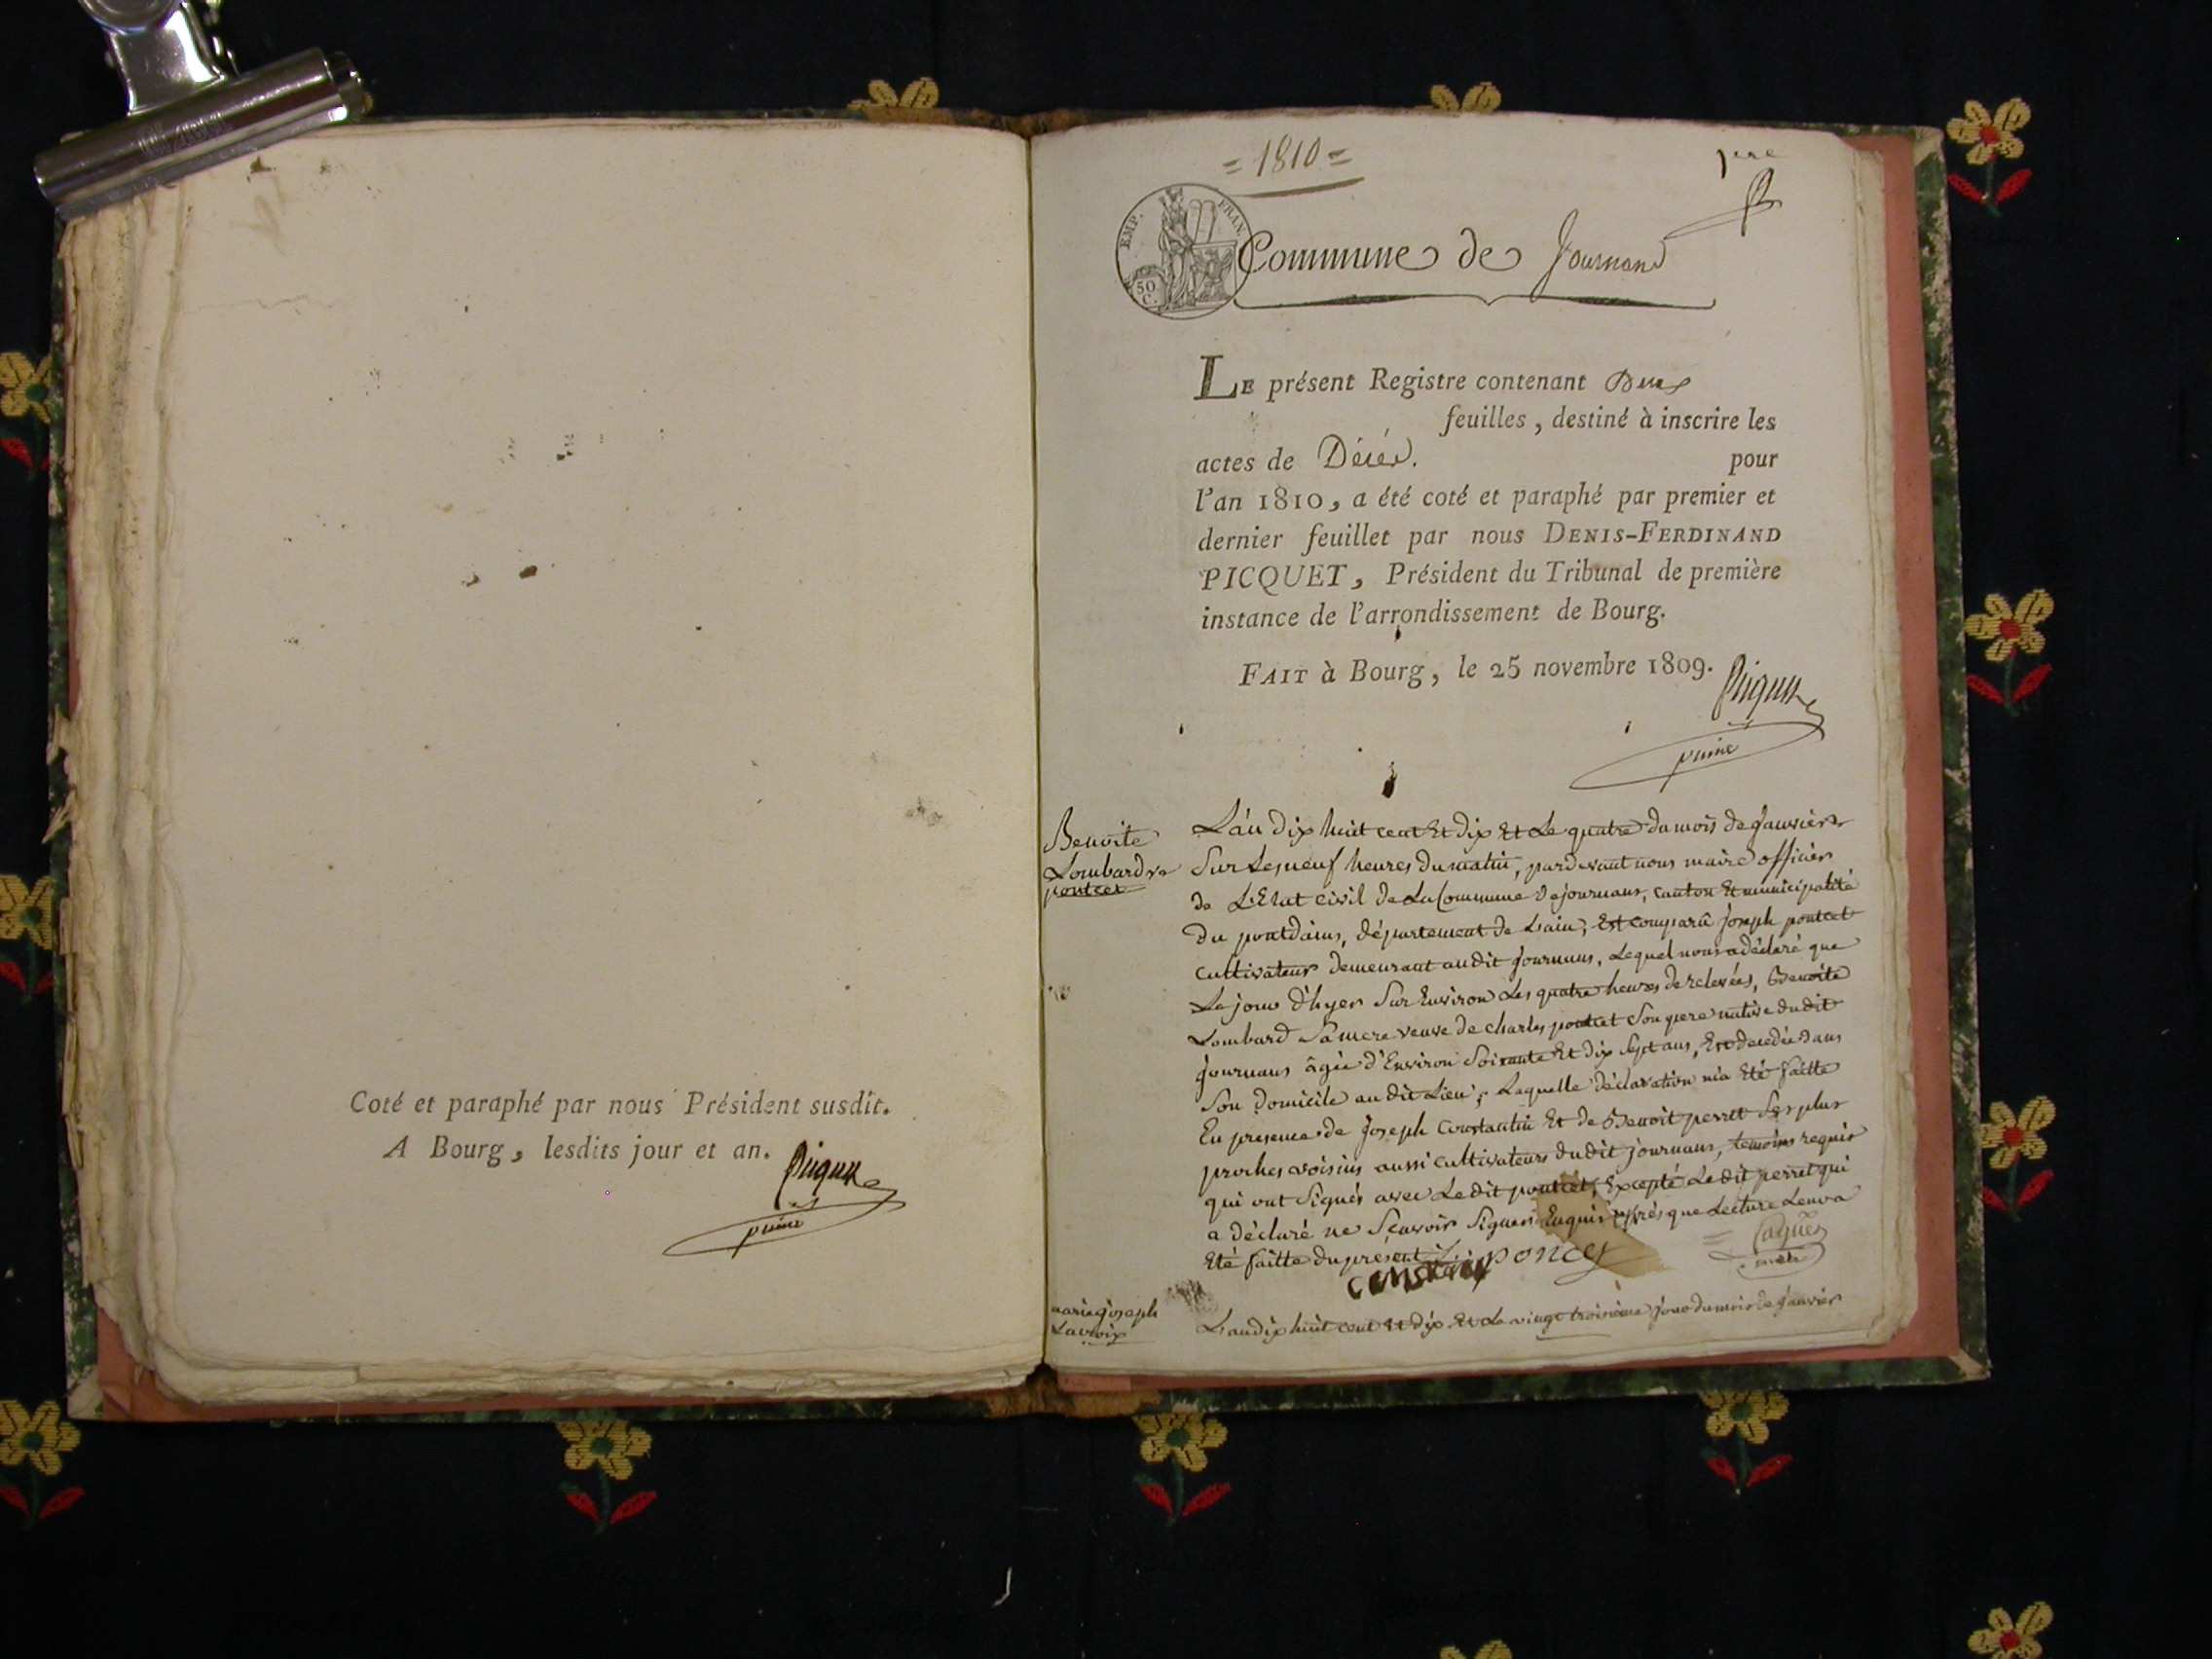 Coté et paraphé par nous Président susdit.
A Bourg, lesdits jour et an.
Picquet
= 1810 =
1ere
EMP. FRAN.
50 C.
Commune de Journans
LE présent Registre contenant Deux
feuilles, destiné à inscrire les
actes de Décès. pour
l'an 1810, a été coté et paraphé par premier et
dernier feuillet par nous DENIS-FERDINAND
PICQUET, Président du Tribunal de première
instance de l'arrondissement de Bourg.
FAIT à Bourg, le 25 novembre 1809.
Picquet
Benoite
Lombard ve
pontcet
L'an dix huit cent Et dix Et Le quatre du mois de Janvier
Sur Les neuf heures du matin, pardevant nous maire officier
de L'Etat civil de La Commune de journans, canton Et municipalité
du pontdains, département de L'ain, Est comparû joseph pontcet
cultivateur demeurant audit journans, Lequel nous a déclaré que
Le jour d'hyer Sur Environ Les quatre heures de relevées, Benoite
Lombard Sa mere veuve de charles pontcet Son pere native dudit
journans âgée d'Environ Soixante Et dix Sept ans, Est decedée dans
Son Domicile au dit Lieu; Laquelle déclaration m'a Eté faitte
En presence de Joseph Constantin Et de Benoit perret Ses plus
proches voisins aussi cultivateurs dudit journans, temoins requis
qui ont Signés avec Ledit pontcet, Excepté Ledit perret qui
a déclaré ne Scavoir Signer Enquis après que Lecture Leur a
Eté faitte du présent
poncet
marie joseph
Lacroix
L'an dix huit cent Et dix Et Le vingt troisième jour du mois de Janvier